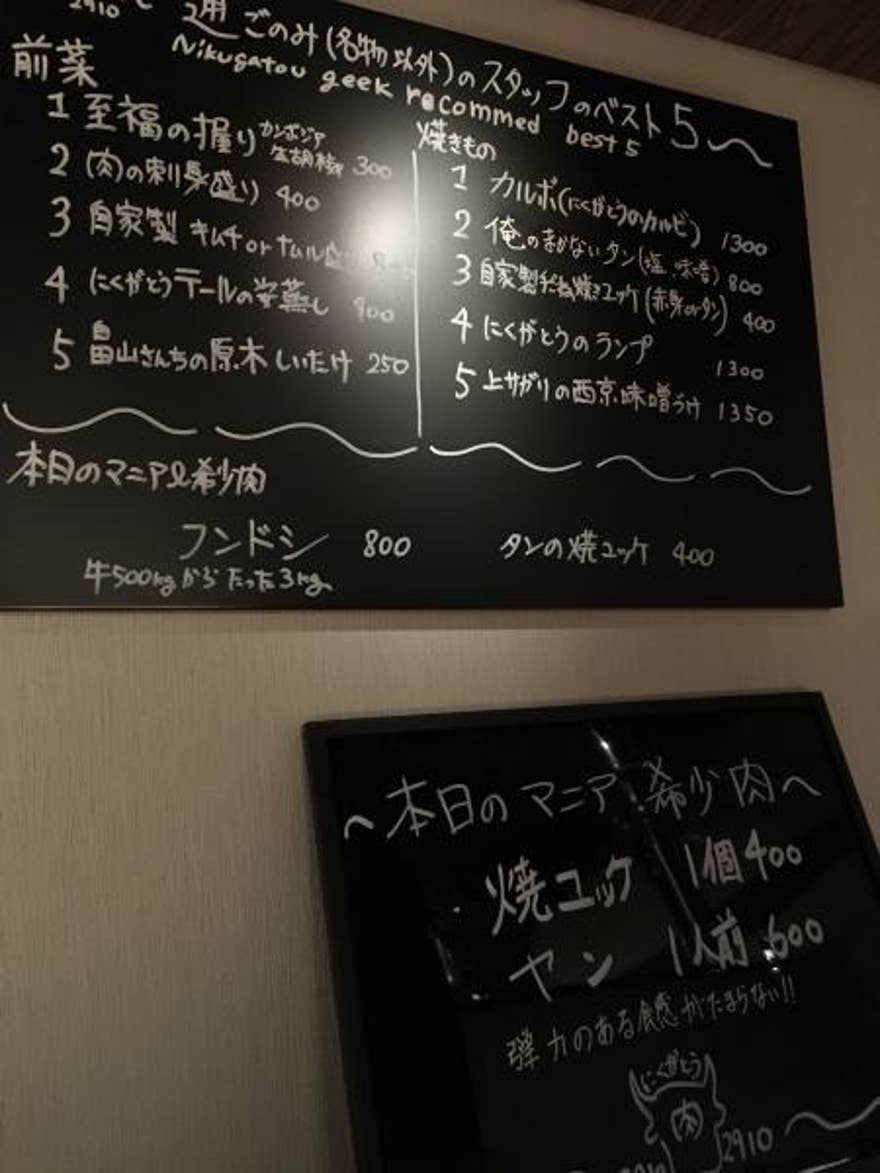 通ごのみ(名物以外)のスタッフのベスト5
Nikugatou geek recommed best 5
前菜
1 至福の握り カンボジア生胡椒 300
2 (肉)の刺身盛り 400
3 自家製 キムチorナムル
4 にくがとうテールの姿蒸し 900
5 畠山さんちの原木しいたけ 250
焼きもの
1 カルボ(にくがとうのカルビ) 1300
2 俺のまかないタン(塩 味噌) 800
3 自家製 焼きユッケ(赤身orタン) 400
4 にくがとうのランプ 1300
5 上サガリの西京味噌づけ 1350
本日のマニアと希少肉
フンドシ 800
牛500kgからたった3kg
タンの焼ユッケ 400
〜本日のマニア 希少肉〜
焼ユッケ 1個400
ヤン 1人前 600
弾力のある食感がたまらない!!
にくがとう
肉
2910